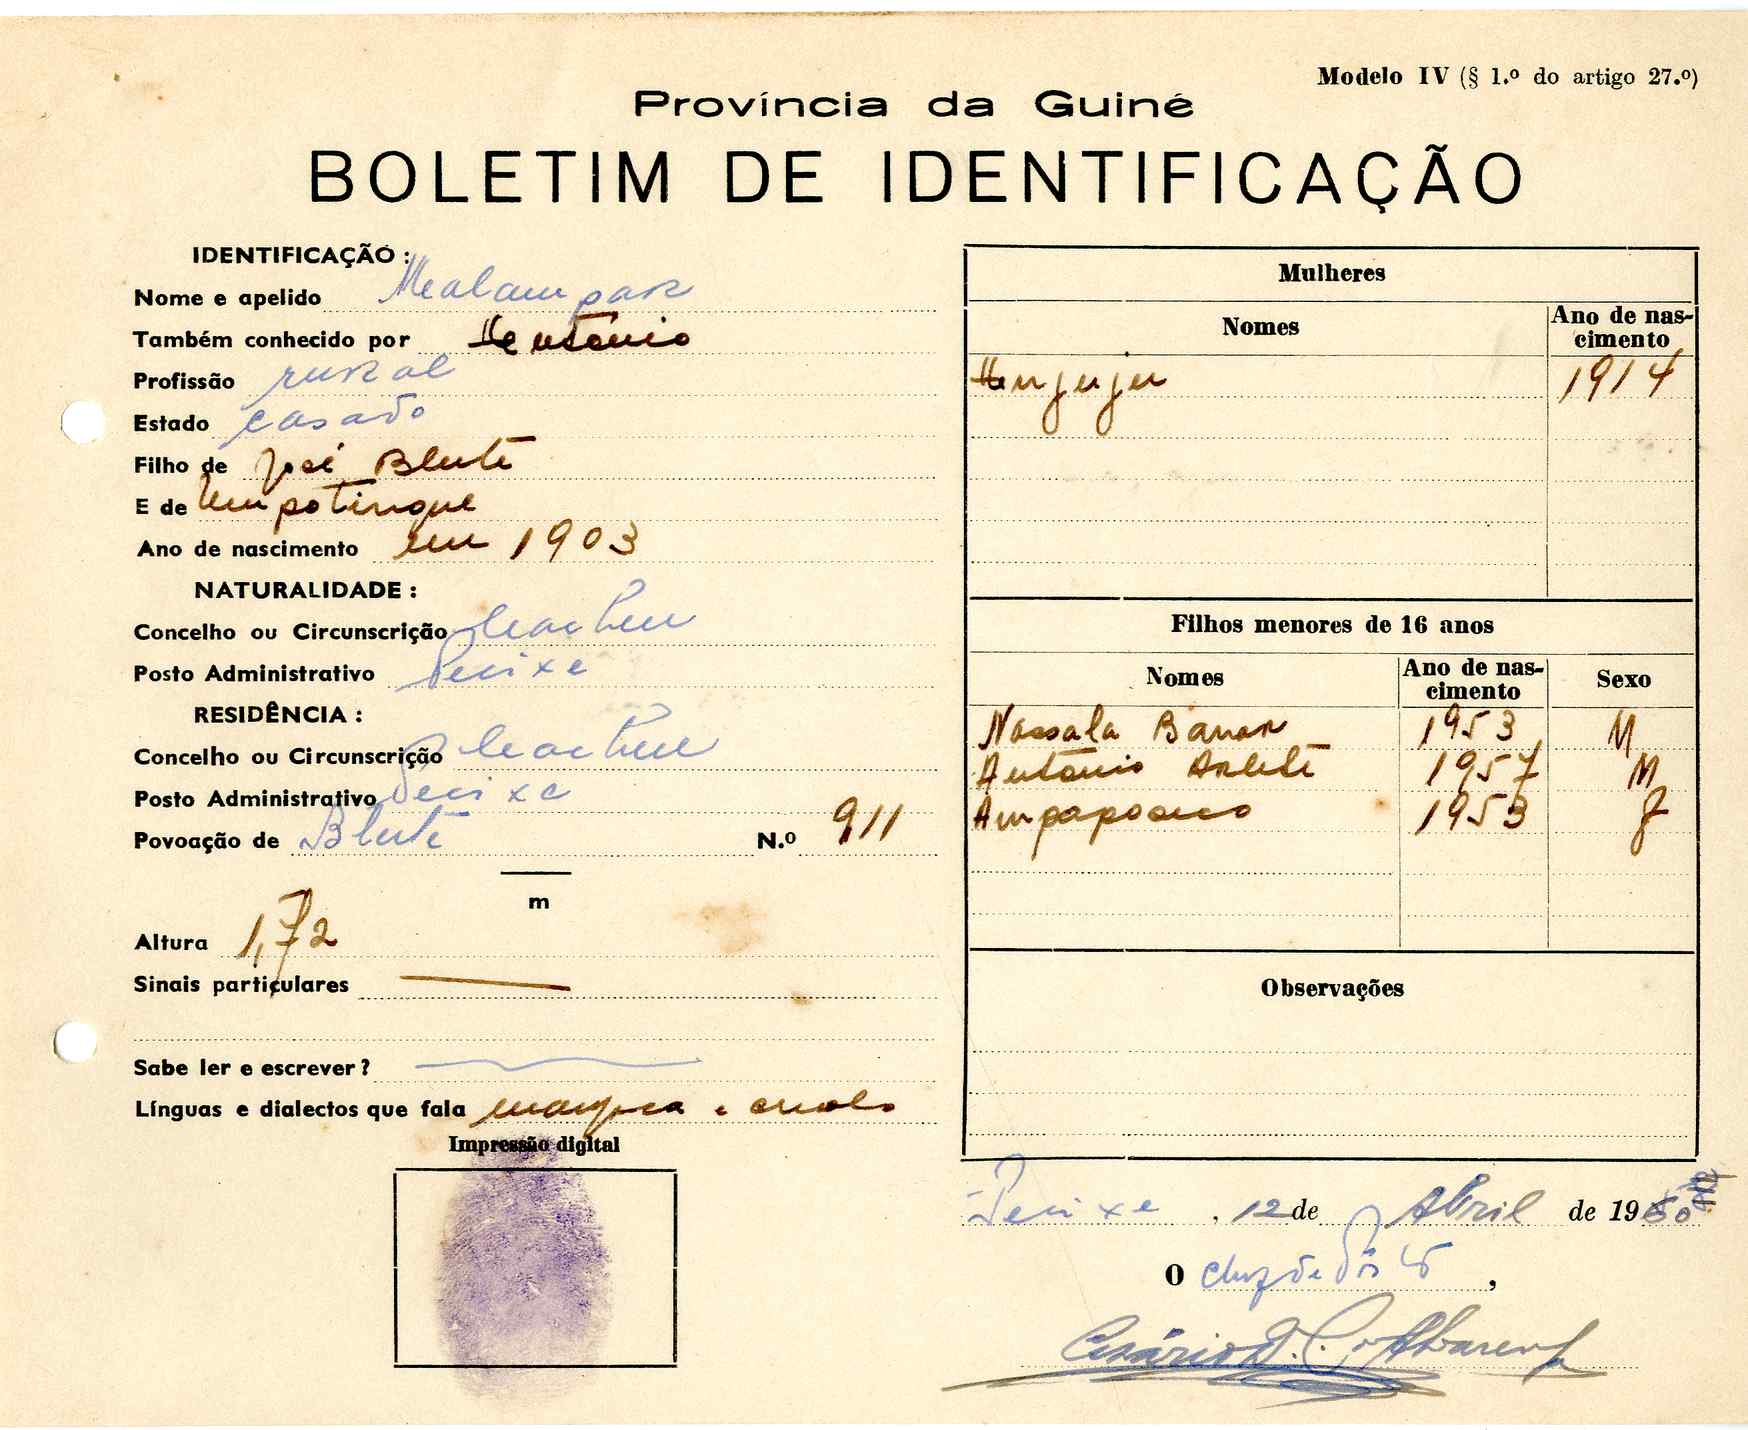 Modelo IV (§ 1.º do artigo 27.º)
Província da Guiné
BOLETIM DE IDENTIFICAÇÃO
IDENTIFICAÇÃO :
Nome e apelido
Também conhecido por
Profissão rural
Estado casado
Filho de José Blute
E de
Ano de nascimento em 1903
NATURALIDADE :
Concelho ou Circunscrição
Posto Administrativo Pecixe
RESIDÊNCIA :
Concelho ou Circunscrição
Posto Administrativo Pecixe
Povoação de Blute N.º 911
m
Altura 1,72
Sinais particulares
Sabe ler e escrever ?
Línguas e dialectos que fala manjaca e crioulo
Impressão digital
Mulheres
Nomes Ano de nas-
cimento
1914
Filhos menores de 16 anos
Nomes Ano de nas-
cimento Sexo
Nassala 1953 M
António 1957 M
1953 F
Observações
Pecixe, 12 de Abril de 1960
O chefe de Pôsto,